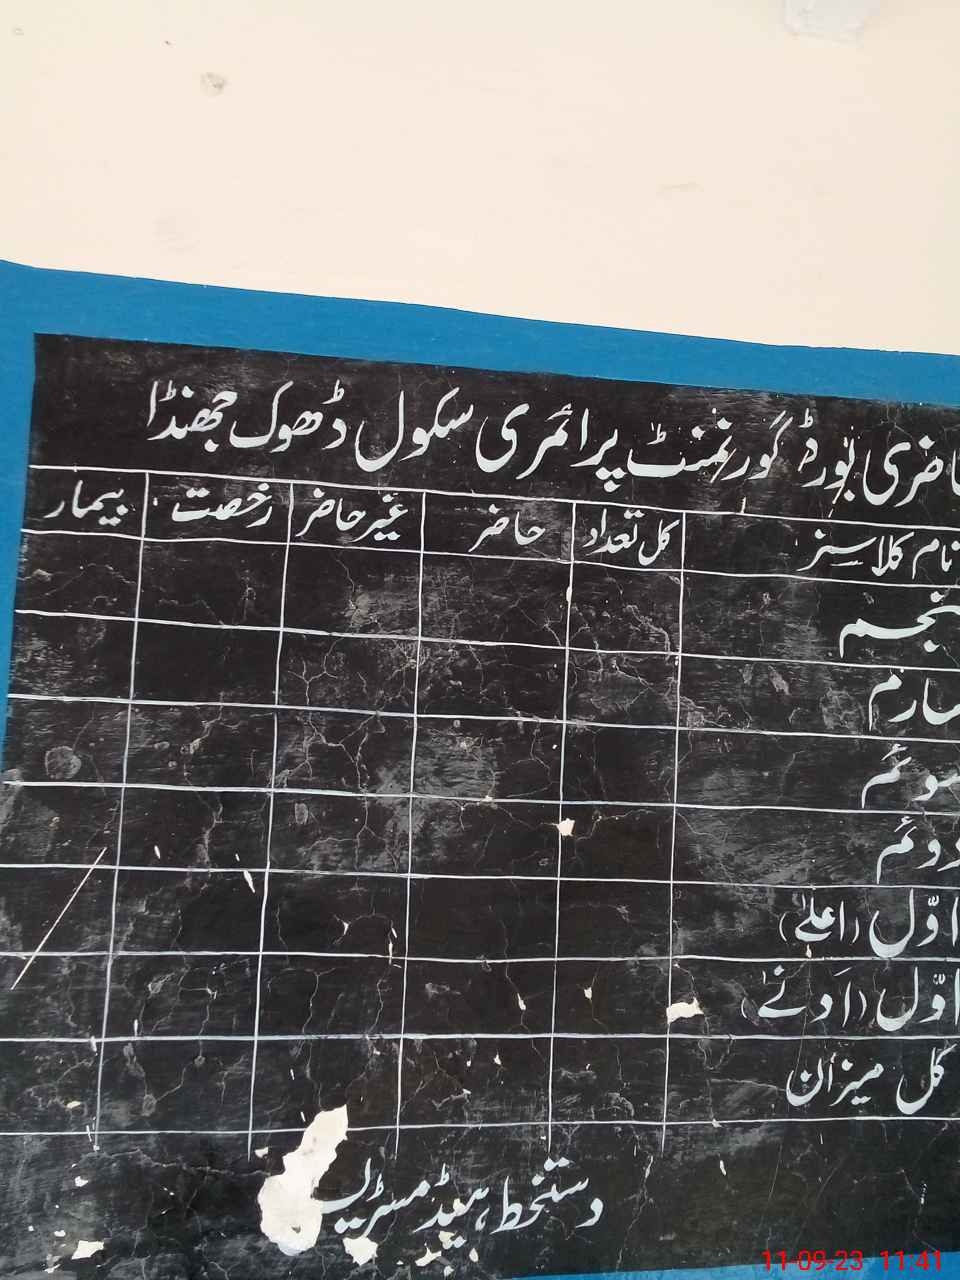 حاضری بورڈ گورنمنٹ پرائمری سکول ڈھوک جھنڈا
نام کلاسز کل تعداد حاضر غیر حاضر رخصت بیمار
پنجم
چہارم
سوئم
دوئم
اوّل (اعلےٰ)
اوّل (ادنےٰ)
کل میزان
دستخط ہیڈمسٹریس
11-09-23 11:41